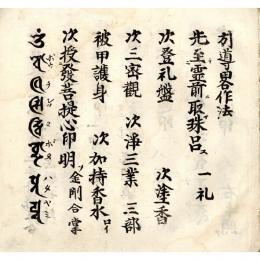 引導畧作法
先至霊前取珠呂ス 一礼
次登礼盤 次塗香
次三密觀 次淨三業 三部
被甲護身 次加持香水ロイ
次授發菩提心印明 金剛合掌